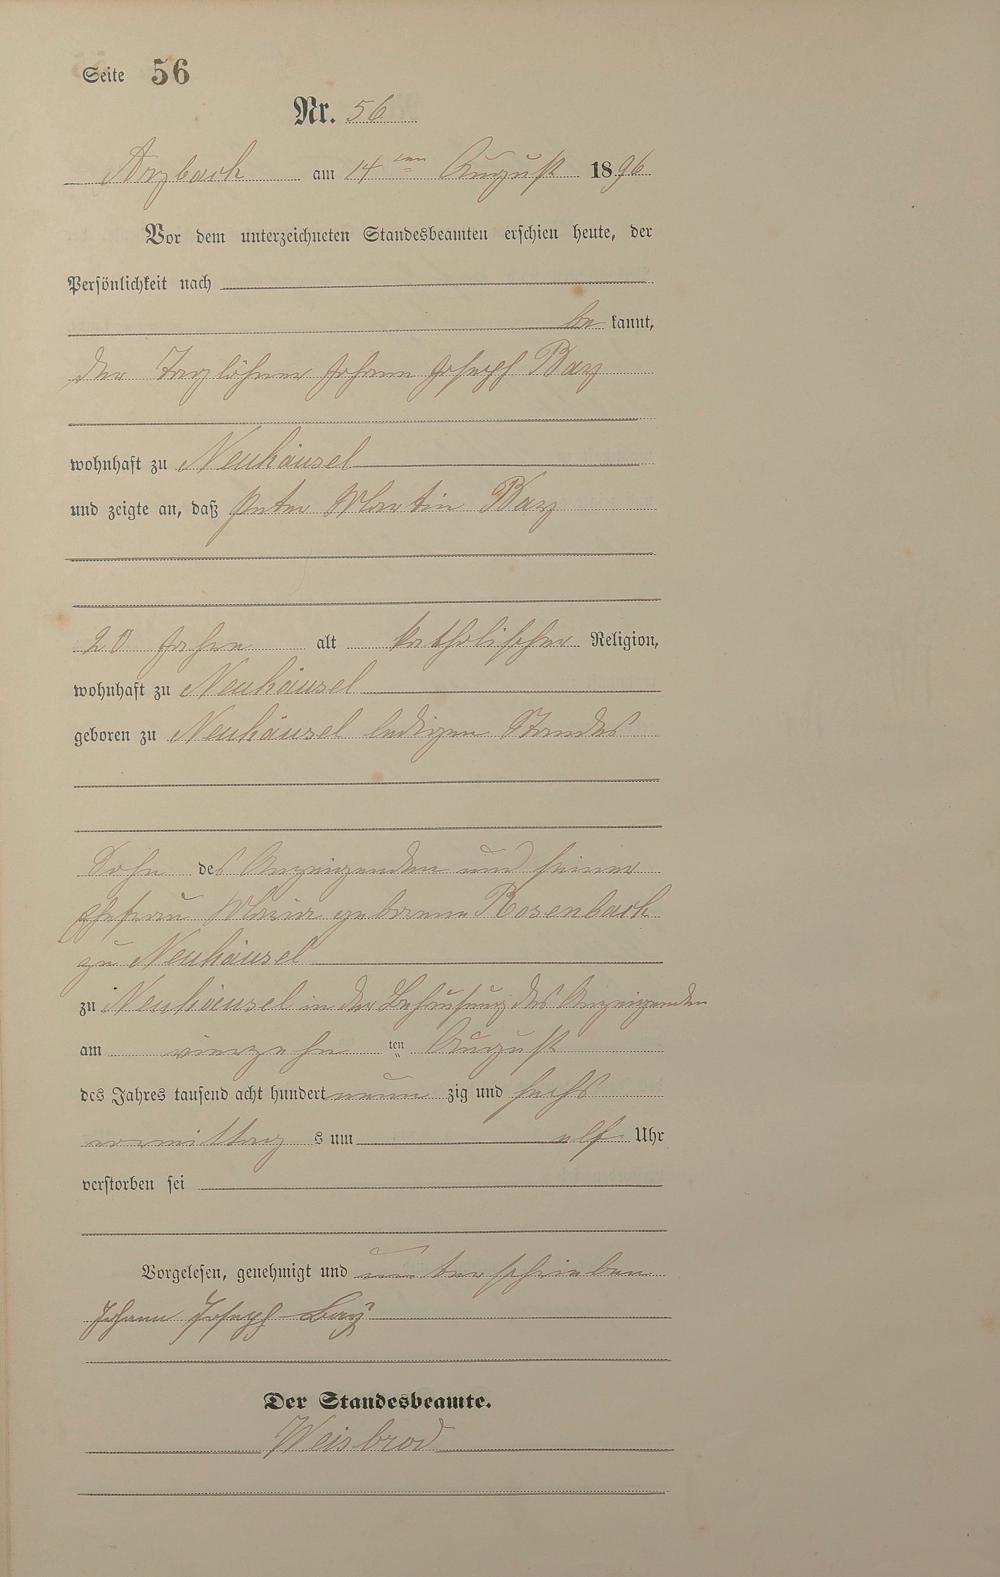 Seite 56
Nr. 56
Arzbach am 14ten August 1896
Vor dem unterzeichneten Standesbeamten erschien heute, der
Persönlichkeit nach
be kannt,
der Taglöhner Johann Joseph Bay
wohnhaft zu Neuhäusel
und zeigte an, daß Peter Martin Bay
20 Jahre alt katholischer Religion,
wohnhaft zu Neuhäusel
geboren zu Neuhäusel ledigen Standes
Sohn des Anzeigenden und seiner
Ehefrau Maria geborene Rosenbach
zu Neuhäusel
zu Neuhäusel in der Behausung des Anzeigenden
am vierzehn ten August
des Jahres tausend acht hundert neun zig und sechs
vormittag s um elf Uhr
verstorben sei
Vorgelesen, genehmigt und unterschrieben
Johann Joseph Bay
Der Standesbeamte.
Weisbrod